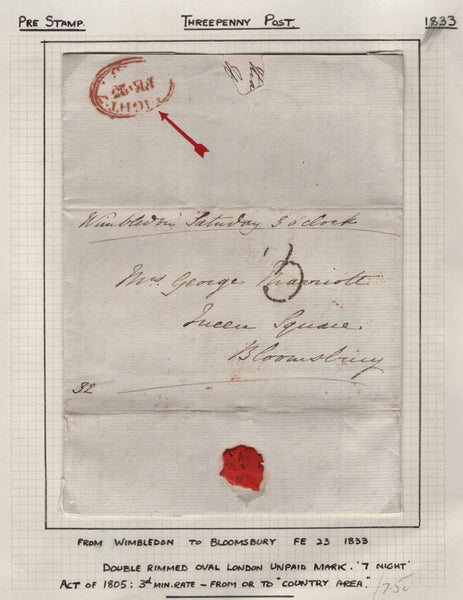 PRE STAMP. THREEPENNY POST. 1833
NIGHT
FE·23
Wimbledon Saturday 3 o'clock
3
Mrs. George Marriott
Queen Square.
Bloomsbury
32
FROM WIMBLEDON TO BLOOMSBURY FE 23 1833
DOUBLE RIMMED OVAL LONDON UNPAID MARK. '7 NIGHT'
ACT OF 1805: 3d MIN. RATE – FROM OR TO "COUNTRY AREA".